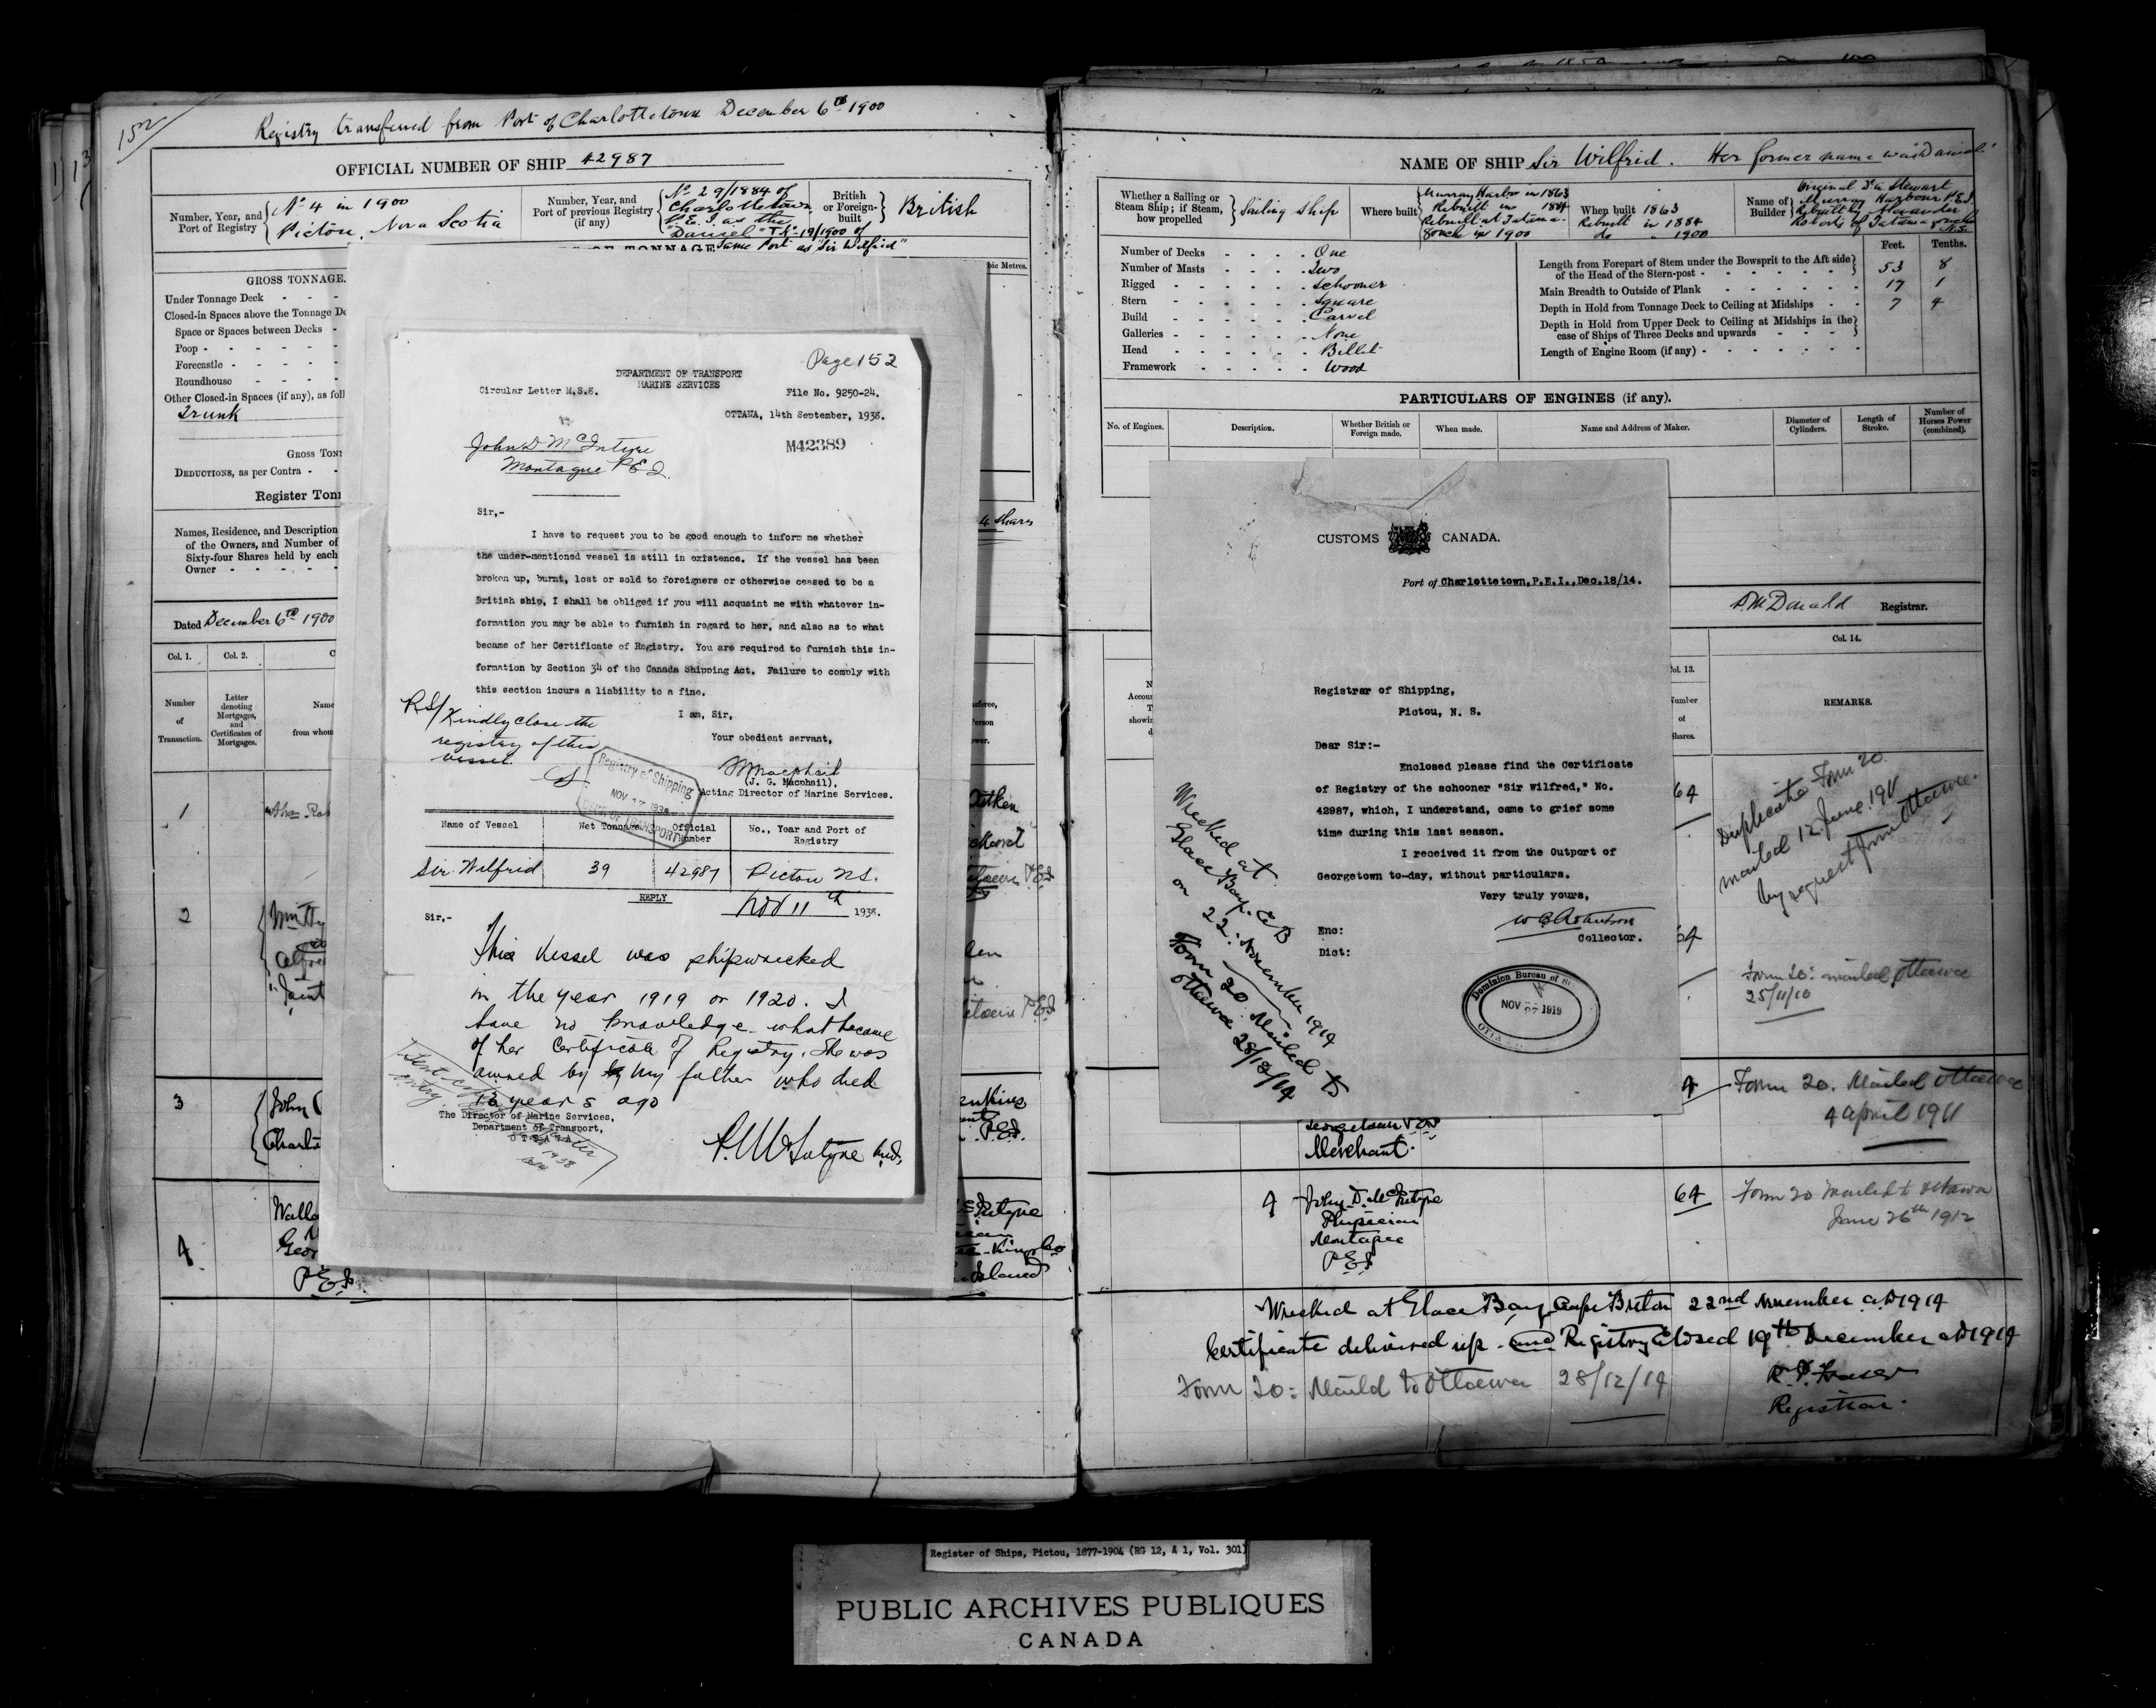 152
Registry transferred from Port of Charlottetown December 6th 1900
OFFICIAL NUMBER OF SHIP 42987
Number, Year, and Port of Registry
No 4 in 1900
Pictou, Nova Scotia
Number, Year, and Port of previous Registry (if any)
No 29/1884 of
Charlottetown,
P.E.I as the
"Daniel" 19/1900 of
Same Port as "Sir Wilfrid"
British or Foreign-built
British
GROSS TONNAGE.
Under Tonnage Deck
Closed-in Spaces above the Tonnage De
Space or Spaces between Decks
Poop
Forecastle
Roundhouse
Other Closed-in Spaces (if any), as foll
Trunk
GROSS TONN
DEDUCTIONS, as per Contra
Register Ton
Names, Residence, and Description
of the Owners, and Number of
Sixty-four Shares held by each
Owner
4 Shares
Dated December 6th 1900
Col. 1.
Col. 2.
Number of Transaction.
Letter denoting Mortgages, and Certificates of Mortgages.
Name
from whom
1
2
3
John
4
Geor
P.E.I.
Page 152
DEPARTMENT OF TRANSPORT
MARINE SERVICES
Circular Letter M.S.8.
File No. 9250-24.
OTTAWA, 14th September, 1938.
M42389
John D McIntyre
Montague P E I.
Sir,-
I have to request you to be good enough to inform me whether
the under-mentioned vessel is still in existence. If the vessel has been
broken up, burnt, lost or sold to foreigners or otherwise ceased to be a
British ship, I shall be obliged if you will acquaint me with whatever in-
formation you may be able to furnish in regard to her, and also as to what
became of her Certificate of Registry. You are required to furnish this in-
formation by Section 34 of the Canada Shipping Act. Failure to comply with
this section incurs a liability to a fine.
I am, Sir,
Your obedient servant,
(J. G. Macphail),
Acting Director of Marine Services.
RS/ Kindly close the
registry of this
vessel.
Registry of Shipping
NOV 17 1938
DEPT OF TRANSPORT
Name of Vessel
Net Tonnage
Official Number
No., Year and Port of Registry
Sir Wilfrid
39
42987
Pictou N.S.
REPLY
Nov 11th 1938.
Sir,-
This Vessel was shipwrecked
in the year 1919 or 1920. I
have no knowledge what became
of her Certificate of Registry. She was
owned by my father who died
years ago
The Director of Marine Services,
Department of Transport,
OTTAWA
1938
NAME OF SHIP Sir Wilfrid. Her former name was "Daniel"
Whether a Sailing or Steam Ship; if Steam, how propelled
Sailing Ship
Where built
Murray Harbor in 1863
Rebuilt in 1884
Rebuilt at Tatama-
gouche in 1900
When built 1863
Rebuilt in 1884
do " 1900
Name of Builder
Original Stewart
Murray Harbour P.E.I.
Rebuilt by Alexander
Roberts of Tatamagouche N.S.
Number of Decks One
Number of Masts Two
Rigged Schooner
Stern Square
Build Carvel
Galleries None
Head Billet
Framework Wood
Feet. Tenths.
Length from Forepart of Stem under the Bowsprit to the Aft side
of the Head of the Stern-post 53 8
Main Breadth to Outside of Plank 17 1
Depth in Hold from Tonnage Deck to Ceiling at Midships 7 4
Depth in Hold from Upper Deck to Ceiling at Midships in the
case of Ships of Three Decks and upwards
Length of Engine Room (if any)
PARTICULARS OF ENGINES (if any).
No. of Engines.
Description.
Whether British or Foreign made.
When made.
Name and Address of Maker.
Diameter of Cylinders.
Length of Stroke.
Number of Horses Power (combined).
D McDonald Registrar.
CUSTOMS CANADA.
Port of Charlottetown,P.E.I.,Dec.18/14.
Registrar of Shipping,
Pictou, N. S.
Dear Sir:-
Enclosed please find the Certificate
of Registry of the schooner "Sir Wilfred," No.
42987, which, I understand, came to grief some
time during this last season.
I received it from the Outport of
Georgetown to-day, without particulars.
Very truly yours,
Collector.
Enc:
Dict:
Dominion Bureau of St
NOV 27 1919
Wrecked at
Glace Bay. C.B
on 22. November 1914
Form 20. Mailed to
Ottawa 28/12/14
Col. 13.
Number of Shares.
Col. 14.
REMARKS.
64
Duplicate Form 20.
mailed 12 June 1911
by request from Ottawa
64
Form 20: mailed Ottawa
25/11/10
Form 20. Mailed Ottawa
4 April 1911
Georgetown P.E.I
Merchant.
4
John D. McIntyre
Physician
Montague
P.E.I
64
Form 20 Mailed to Ottawa
June 26th 1912
Wrecked at Glace Bay Cape Breton 22nd November A.D 1914
Certificate delivered up. and Registry Closed 19th December A.D 1914
Form 20: Maild to Ottawa 28/12/14
Registrar.
Register of Ships, Pictou, 1877-1904 (RG 12, A 1, Vol. 301)
PUBLIC ARCHIVES PUBLIQUES
CANADA